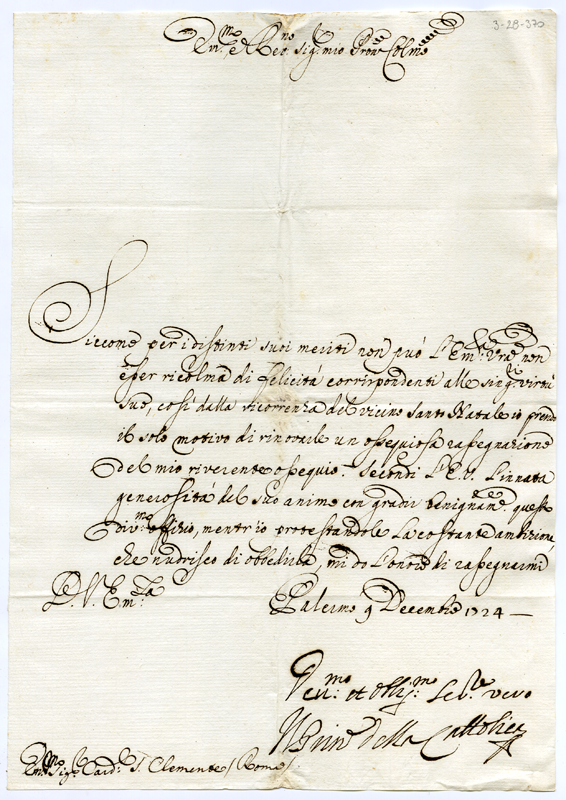 3-28-370
Em.mo e Rev.mo Sig.r mio Pron.e Col.mo
Siccome per i distinti suoi meriti non può L'Em.za Vra non
esser ricolma di felicità corrispondenti alle sing.ri virtù
sue, così dalla ricorrenza del vicino Santo Natale io prendo
il solo motivo di rinovarle un ossequiosa rassegnazione
del mio riverente ossequio. Secondi L'E.V. l'innata
generosità del suo animo con gradir benignam.te questo
div.mo offizio, mentr'io protestandole La costante ambizione,
che nudrisco di obbedirla, mi do L'onore di rassegnarmi
D. V. Em.za
Palermo 9 Decembre 1724
Dev.mo et obblig.mo Se.re vero
Il Prin.e della Cattolica
Em.mo Sig.r Card.l S. Clemente / Roma /